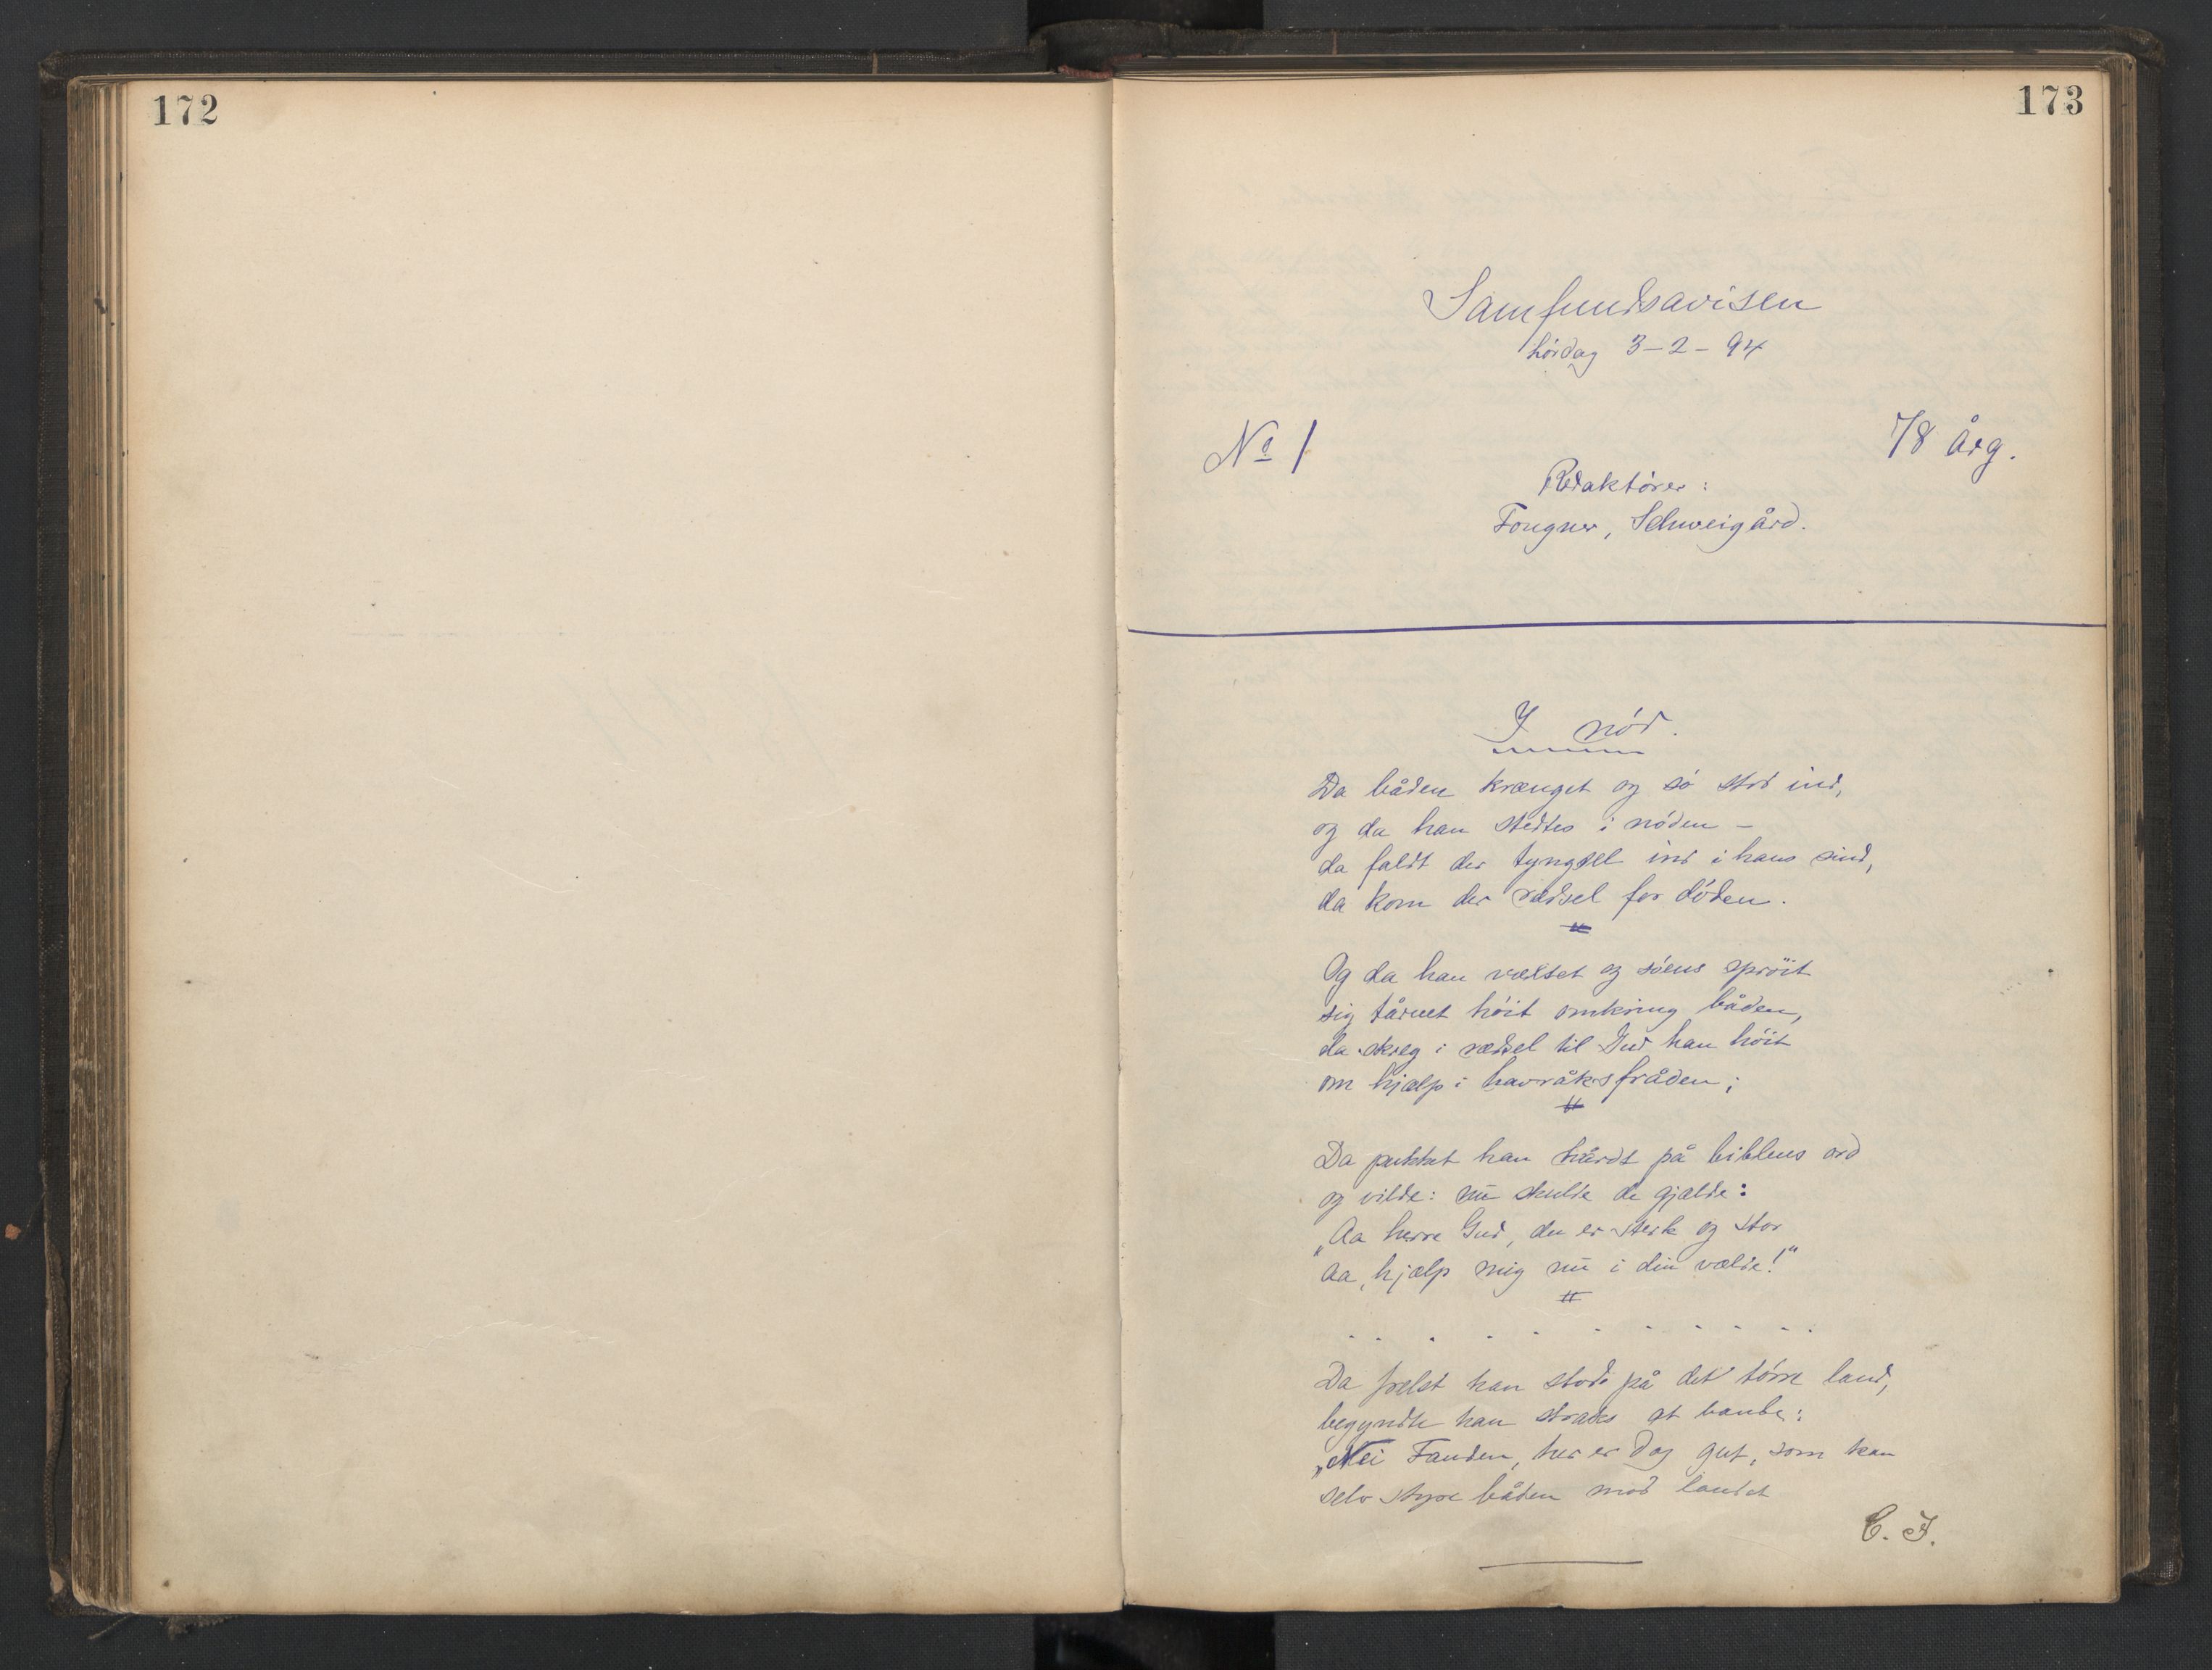 172
173
Samfundsavisen
Lørdag 3-2-94
No 1
78 årg.
Redaktører:
Fougner, Schweigård.
I nød.
Da båden krænget og sø stod ind,
og da han stedtes i nøden –
da faldt der tyngsel ind i hans sind,
da kom der rædsel for døden.
Og da han væltet og søens sprøit
sig tårnet høit omkring båden,
da skreg i rædsel til Gud han høit
om hjælp i havråksfråden;
Da pukket han hårdt på biblens ord
og vilde: nu skulde de gjælde:
„Aa herre Gud, du er sterk og stor
Aa, hjælp mig nu i din vælde!"
Da frelst han stod på det tørre land,
begyndte han straks at bande:
„Nei Fanden, her er dog gut, som kan
selv styre båden mod landet
C. J.